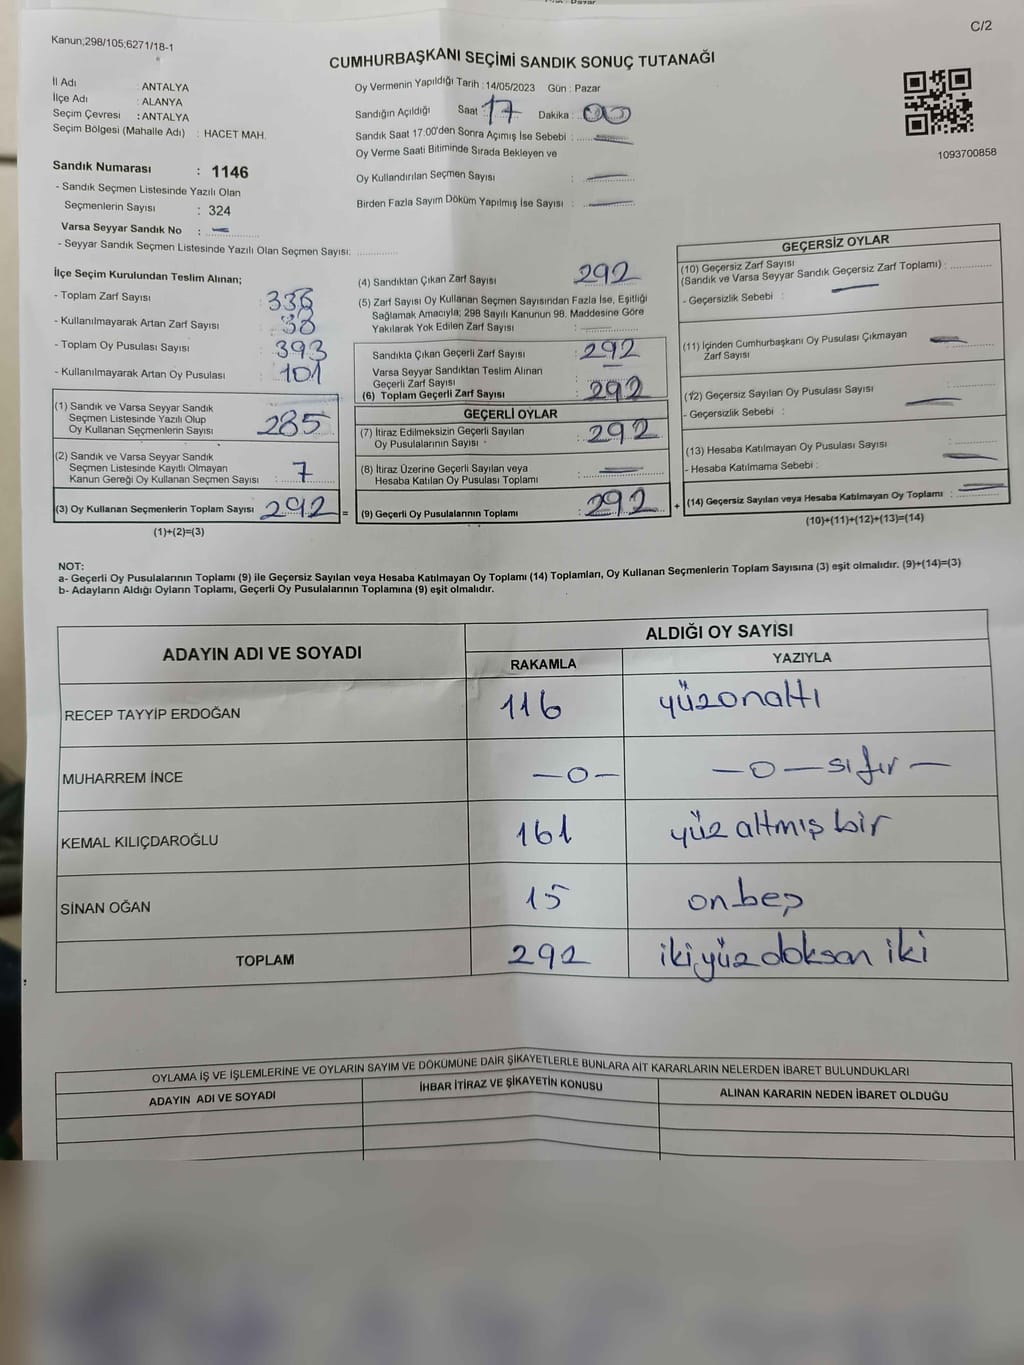 C/2
Kanun;298/105;6271/18-1
CUMHURBAŞKANI SEÇİMİ SANDIK SONUÇ TUTANAĞI
İl Adı : ANTALYA
İlçe Adı : ALANYA
Seçim Çevresi : ANTALYA
Seçim Bölgesi (Mahalle Adı) : HACET MAH.
Oy Vermenin Yapıldığı Tarih : 14/05/2023 Gün : Pazar
Sandığın Açıldığı Saat 17 Dakika : 00
Sandık Saat 17.00'den Sonra Açımış İse Sebebi :
Oy Verme Saati Bitiminde Sırada Bekleyen ve
Oy Kullandırılan Seçmen Sayısı :
Birden Fazla Sayım Döküm Yapılmış İse Sayısı :
1093700858
Sandık Numarası : 1146
- Sandık Seçmen Listesinde Yazılı Olan
Seçmenlerin Sayısı : 324
Varsa Seyyar Sandık No : —
- Seyyar Sandık Seçmen Listesinde Yazılı Olan Seçmen Sayısı:
İlçe Seçim Kurulundan Teslim Alınan;
- Toplam Zarf Sayısı :
- Kullanılmayarak Artan Zarf Sayısı : 38
- Toplam Oy Pusulası Sayısı : 393
- Kullanılmayarak Artan Oy Pusulası : 101
(1) Sandık ve Varsa Seyyar Sandık
Seçmen Listesinde Yazılı Olup
Oy Kullanan Seçmenlerin Sayısı : 285
(2) Sandık ve Varsa Seyyar Sandık
Seçmen Listesinde Kayıtlı Olmayan
Kanun Gereği Oy Kullanan Seçmen Sayısı : 7
(3) Oy Kullanan Seçmenlerin Toplam Sayısı : 292 =
(1)+(2)=(3)
(4) Sandıktan Çıkan Zarf Sayısı : 292
(5) Zarf Sayısı Oy Kullanan Seçmen Sayısından Fazla İse, Eşitliği
Sağlamak Amacıyla; 298 Sayılı Kanunun 98. Maddesine Göre
Yakılarak Yok Edilen Zarf Sayısı :
Sandıkta Çıkan Geçerli Zarf Sayısı : 292
Varsa Seyyar Sandıktan Teslim Alınan
Geçerli Zarf Sayısı : —
(6) Toplam Geçerli Zarf Sayısı : 292
GEÇERLİ OYLAR
(7) İtiraz Edilmeksizin Geçerli Sayılan
Oy Pusulalarının Sayısı : 292
(8) İtiraz Üzerine Geçerli Sayılan veya
Hesaba Katılan Oy Pusulası Toplamı : —
(9) Geçerli Oy Pusulalarının Toplamı : 292 +
GEÇERSİZ OYLAR
(10) Geçersiz Zarf Sayısı
(Sandık ve Varsa Seyyar Sandık Geçersiz Zarf Toplamı) :
- Geçersizlik Sebebi : —
(11) İçinden Cumhurbaşkanı Oy Pusulası Çıkmayan
Zarf Sayısı : —
(12) Geçersiz Sayılan Oy Pusulası Sayısı :
- Geçersizlik Sebebi : —
(13) Hesaba Katılmayan Oy Pusulası Sayısı :
- Hesaba Katılmama Sebebi : —
(14) Geçersiz Sayılan veya Hesaba Katılmayan Oy Toplamı : —
(10)+(11)+(12)+(13)=(14)
NOT:
a- Geçerli Oy Pusulalarının Toplamı (9) ile Geçersiz Sayılan veya Hesaba Katılmayan Oy Toplamı (14) Toplamları, Oy Kullanan Seçmenlerin Toplam Sayısına (3) eşit olmalıdır. (9)+(14)=(3)
b- Adayların Aldığı Oyların Toplamı, Geçerli Oy Pusulalarının Toplamına (9) eşit olmalıdır.
ADAYIN ADI VE SOYADI
ALDIĞI OY SAYISI
RAKAMLA YAZIYLA
RECEP TAYYİP ERDOĞAN 116 yüzonaltı
MUHARREM İNCE —0— —0—sıfır—
KEMAL KILIÇDAROĞLU 161 yüz altmış bir
SİNAN OĞAN 15 onbeş
TOPLAM 292 ikiyüzdoksan iki
OYLAMA İŞ VE İŞLEMLERİNE VE OYLARIN SAYIM VE DÖKÜMÜNE DAİR ŞİKAYETLERLE BUNLARA AİT KARARLARIN NELERDEN İBARET BULUNDUKLARI
ADAYIN ADI VE SOYADI İHBAR İTİRAZ VE ŞİKAYETİN KONUSU ALINAN KARARIN NEDEN İBARET OLDUĞU